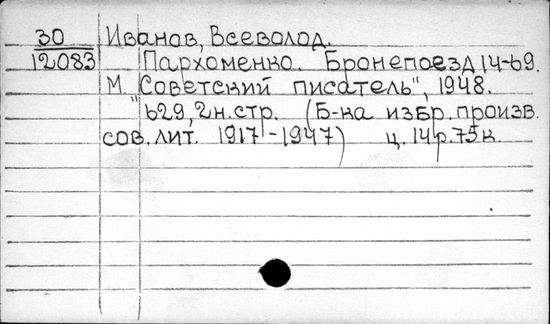 30 Иванов, Всеволод.
12083 Пархоменко. Бронепоезд 14-69.
М. "Советский писатель", 1948.
629, 2н.стр. (Б-ка избр. произв.
сов. лит. 1917-1947) ц. 14р.75к.